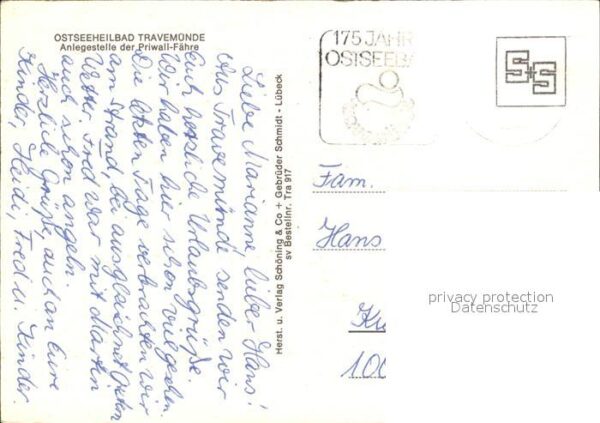 OSTSEEHEILBAD TRAVEMÜNDE
Anlegestelle der Priwall-Fähre
Liebe Marianne, lieber Hans!
Aus Travemünde senden wir
Euch herzliche Urlaubsgrüße.
Wir haben hier schon viel gesehen.
Die letzten Tage verbrachten wir
am Strand, bei ausgezeichnetem
Wetter. Fred war mit Martin
auch schon angeln.
Herzliche Grüße, auch an Eure
Kinder, Heidi, Fred u. Kinder.
Herst. u. Verlag Schöning & Co + Gebrüder Schmidt - Lübeck
sv Bestellnr. Tra 917
175 JAHR
OSTSEEBA
S+S
Fam.
Hans
privacy protection
Datenschutz
100